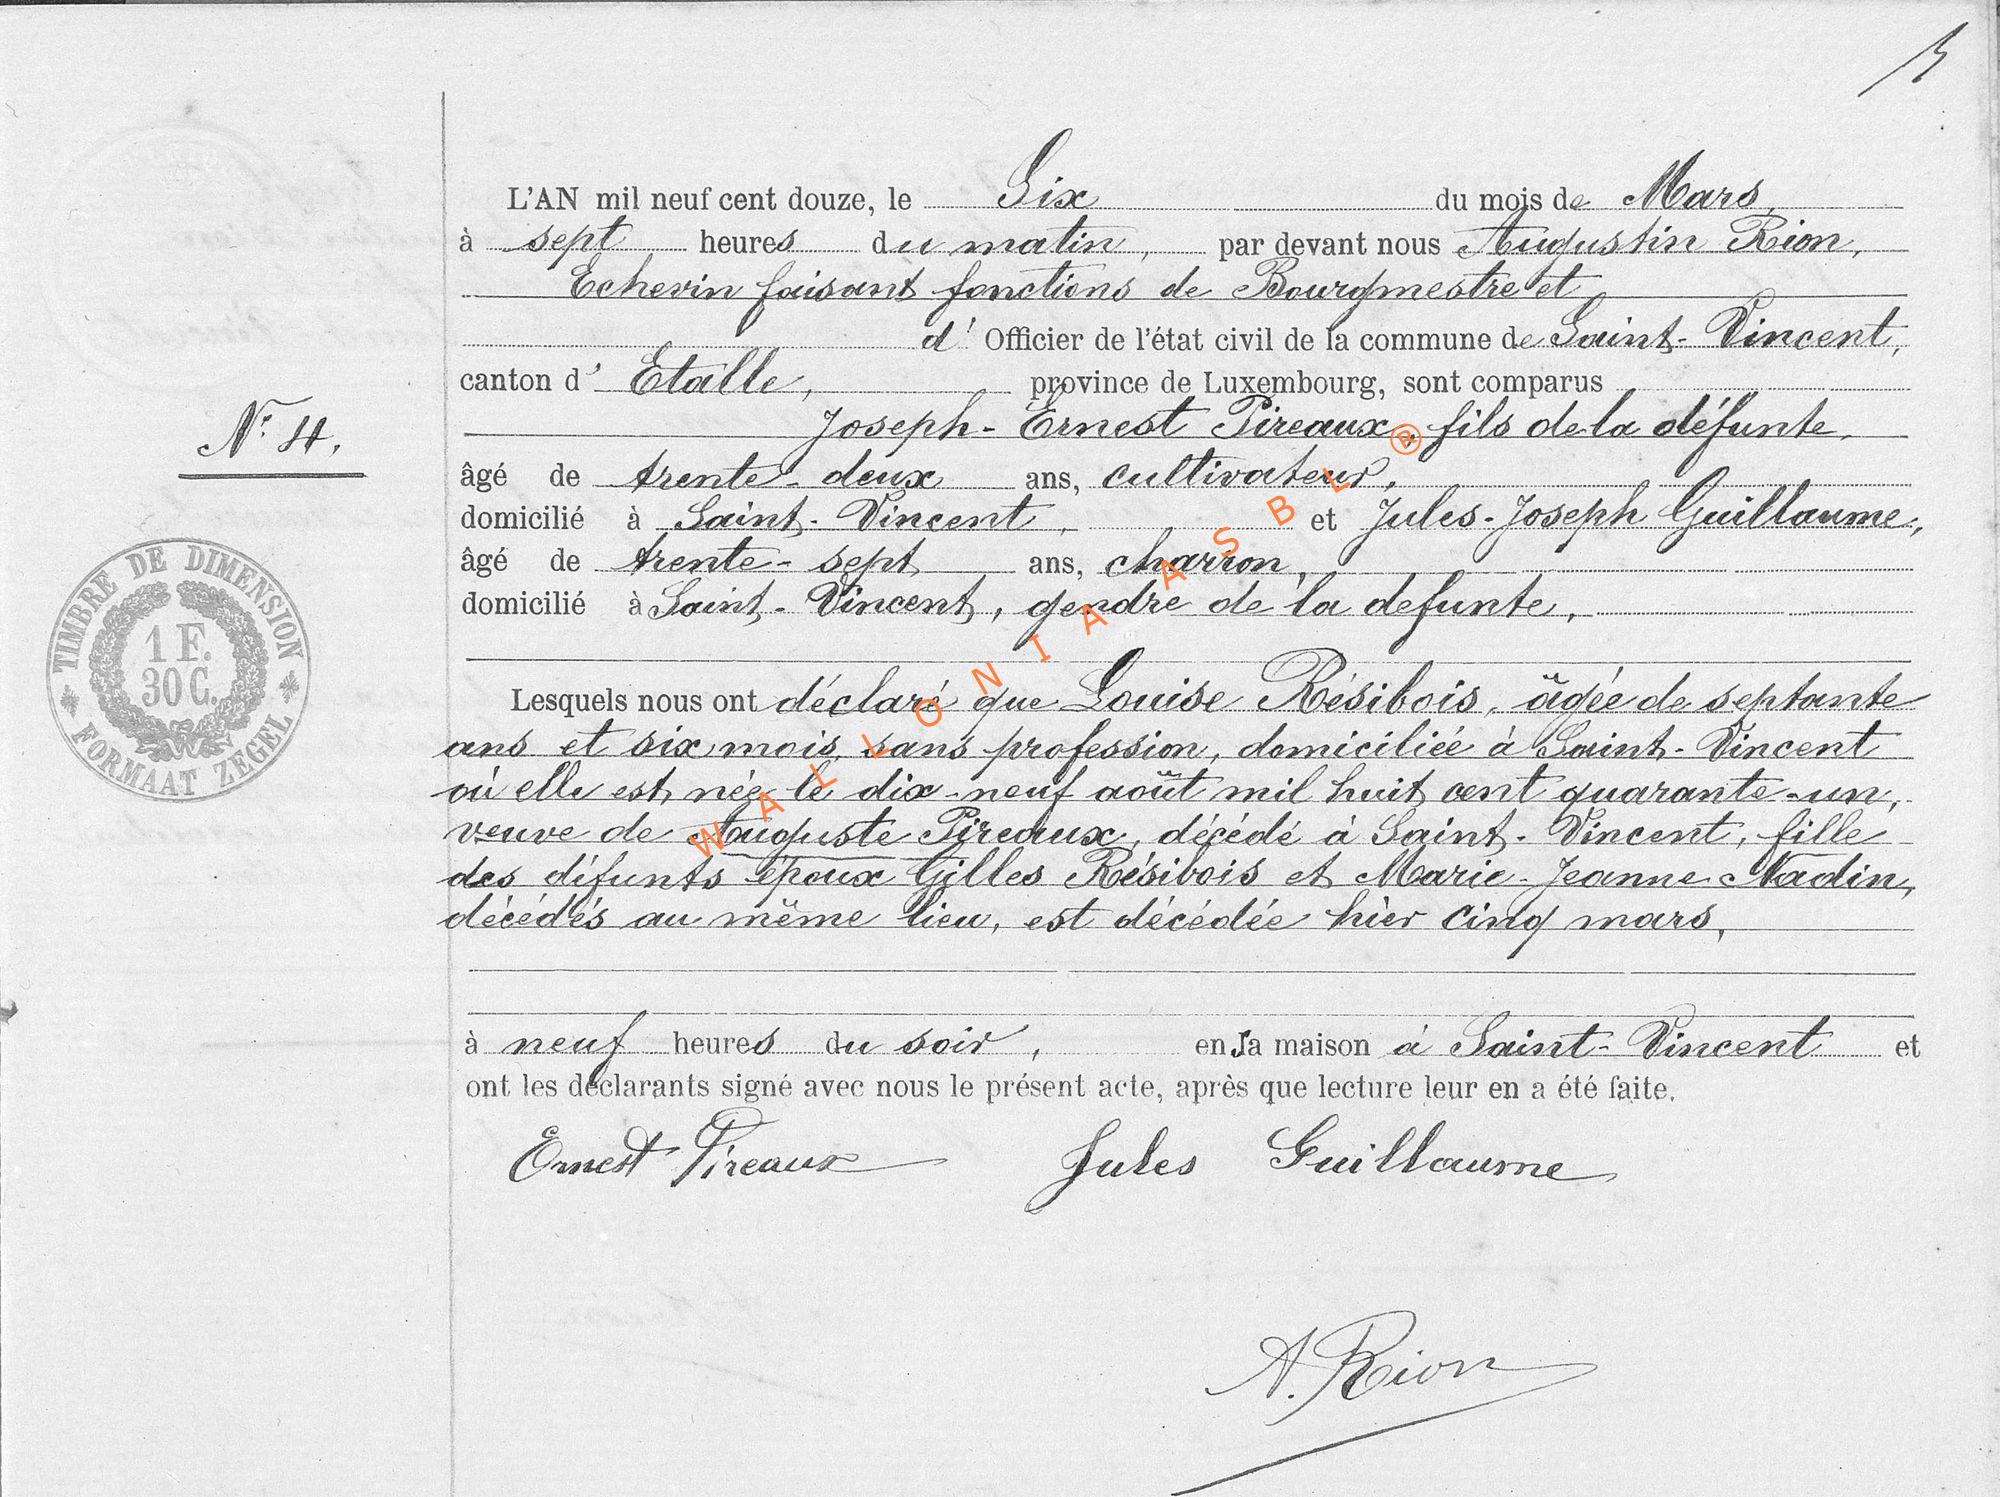 L'AN mil neuf cent douze, le Six du mois de Mars,
à sept heures du matin, par devant nous Augustin Rion,
Echevin faisant fonctions de Bourgmestre et
d' Officier de l'état civil de la commune de Saint-Vincent,
canton d' Etalle, province de Luxembourg, sont comparus
Joseph-Ernest Pireaux, fils de la défunte,
âgé de trente-deux ans, cultivateur,
domicilié à Saint-Vincent, et Jules-Joseph Guillaume,
N° 4.
âgé de trente-sept ans, charron,
domicilié à Saint-Vincent, gendre de la defunte,
TIMBRE DE DIMENSION
1 F.
30 C.
FORMAAT ZEGEL
Lesquels nous ont déclaré que Louise Résibois, âgée de septante
ans et six mois, sans profession, domiciliée à Saint-Vincent
où elle est née le dix-neuf août mil huit cent quarante-un,
veuve de Auguste Pireaux, décédé à Saint-Vincent, fille
des défunts époux Gilles Résibois et Marie-Jeanne Nadin,
décédés au même lieu, est décédée hier cinq mars,
à neuf heures du soir, en sa maison à Saint-Vincent et
ont les déclarants signé avec nous le présent acte, après que lecture leur en a été faite.
Ernest Pireaux Jules Guillaume
A. Rion
WALLONIA ASBL ®